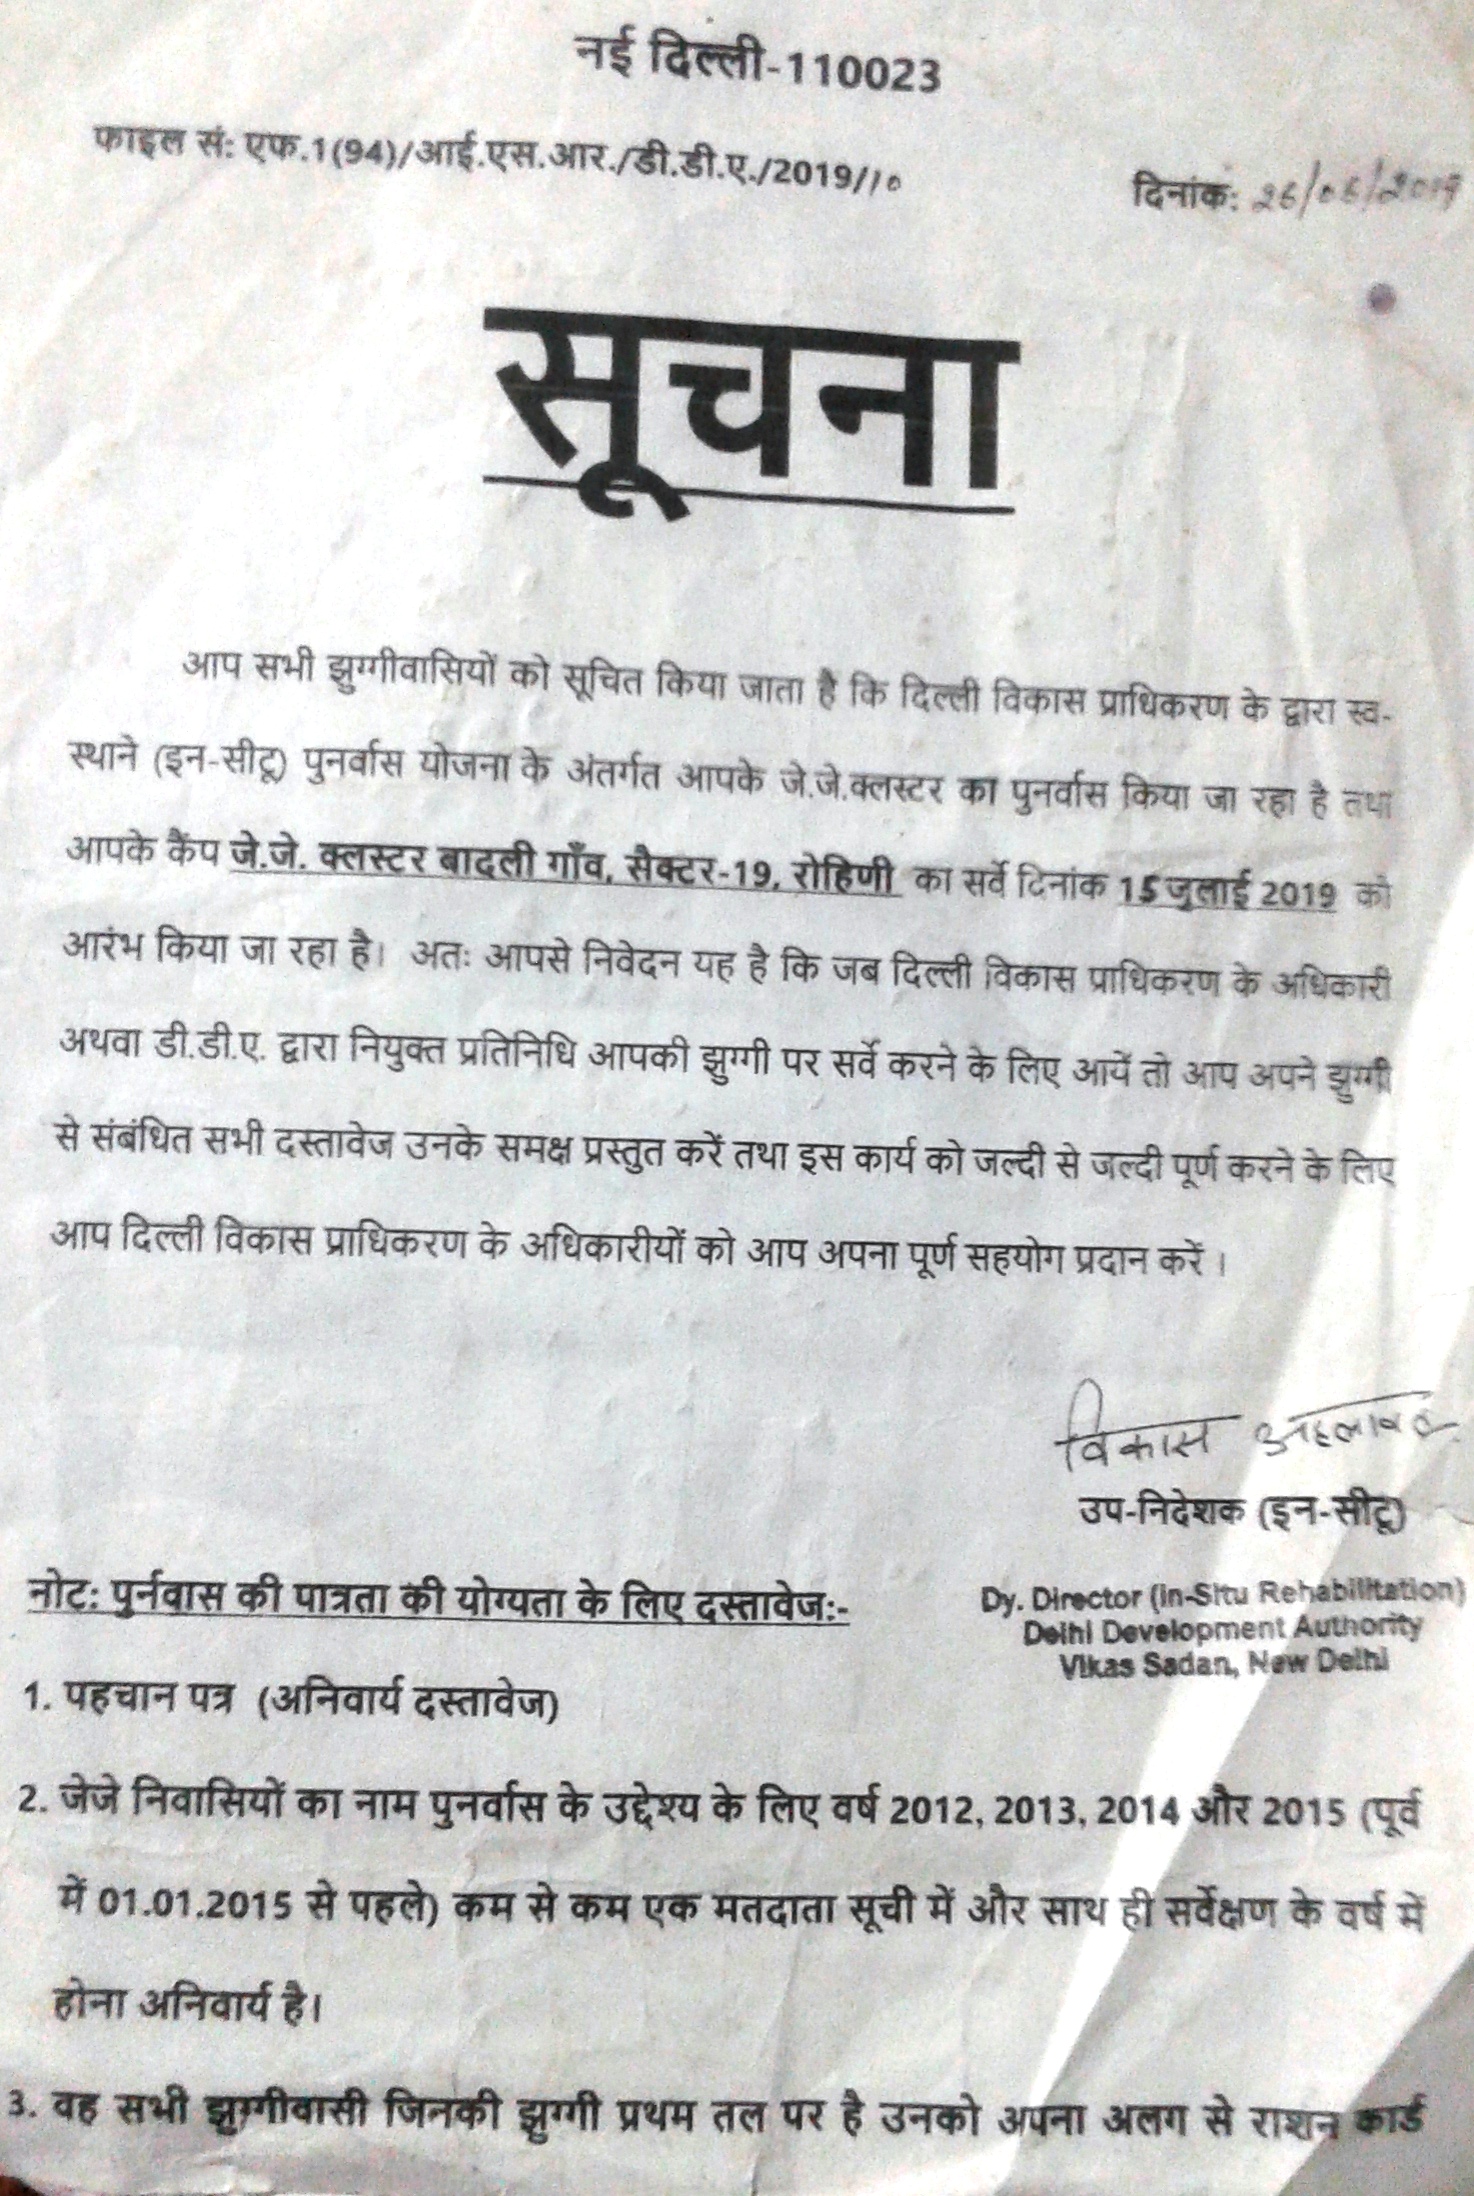 नई दिल्ली-110023
फाइल सं: एफ.1(94)/आई.एस.आर./डी.डी.ए./2019//10
दिनांक: 26/06/2019
सूचना
आप सभी झुग्गीवासियों को सूचित किया जाता है कि दिल्ली विकास प्राधिकरण के द्वारा स्व-
स्थाने (इन-सीटू) पुनर्वास योजना के अंतर्गत आपके जे.जे.क्लस्टर का पुनर्वास किया जा रहा है तथा
आपके कैंप जे.जे. क्लस्टर बादली गाँव, सैक्टर-19, रोहिणी का सर्वे दिनांक 15 जुलाई 2019 को
आरंभ किया जा रहा है। अतः आपसे निवेदन यह है कि जब दिल्ली विकास प्राधिकरण के अधिकारी
अथवा डी.डी.ए. द्वारा नियुक्त प्रतिनिधि आपकी झुग्गी पर सर्वे करने के लिए आयें तो आप अपने झुग्गी
से संबंधित सभी दस्तावेज उनके समक्ष प्रस्तुत करें तथा इस कार्य को जल्दी से जल्दी पूर्ण करने के लिए
आप दिल्ली विकास प्राधिकरण के अधिकारीयों को आप अपना पूर्ण सहयोग प्रदान करें ।
विकास अहलावत
उप-निदेशक (इन-सीटू)
Dy. Director (In-Situ Rehabilitation)
Delhi Development Authority
Vikas Sadan, New Delhi
नोट: पुर्नवास की पात्रता की योग्यता के लिए दस्तावेज:-
1. पहचान पत्र (अनिवार्य दस्तावेज)
2. जेजे निवासियों का नाम पुनर्वास के उद्देश्य के लिए वर्ष 2012, 2013, 2014 और 2015 (पूर्व
में 01.01.2015 से पहले) कम से कम एक मतदाता सूची में और साथ ही सर्वेक्षण के वर्ष में
होना अनिवार्य है।
3. वह सभी झुग्गीवासी जिनकी झुग्गी प्रथम तल पर है उनको अपना अलग से राशन कार्ड